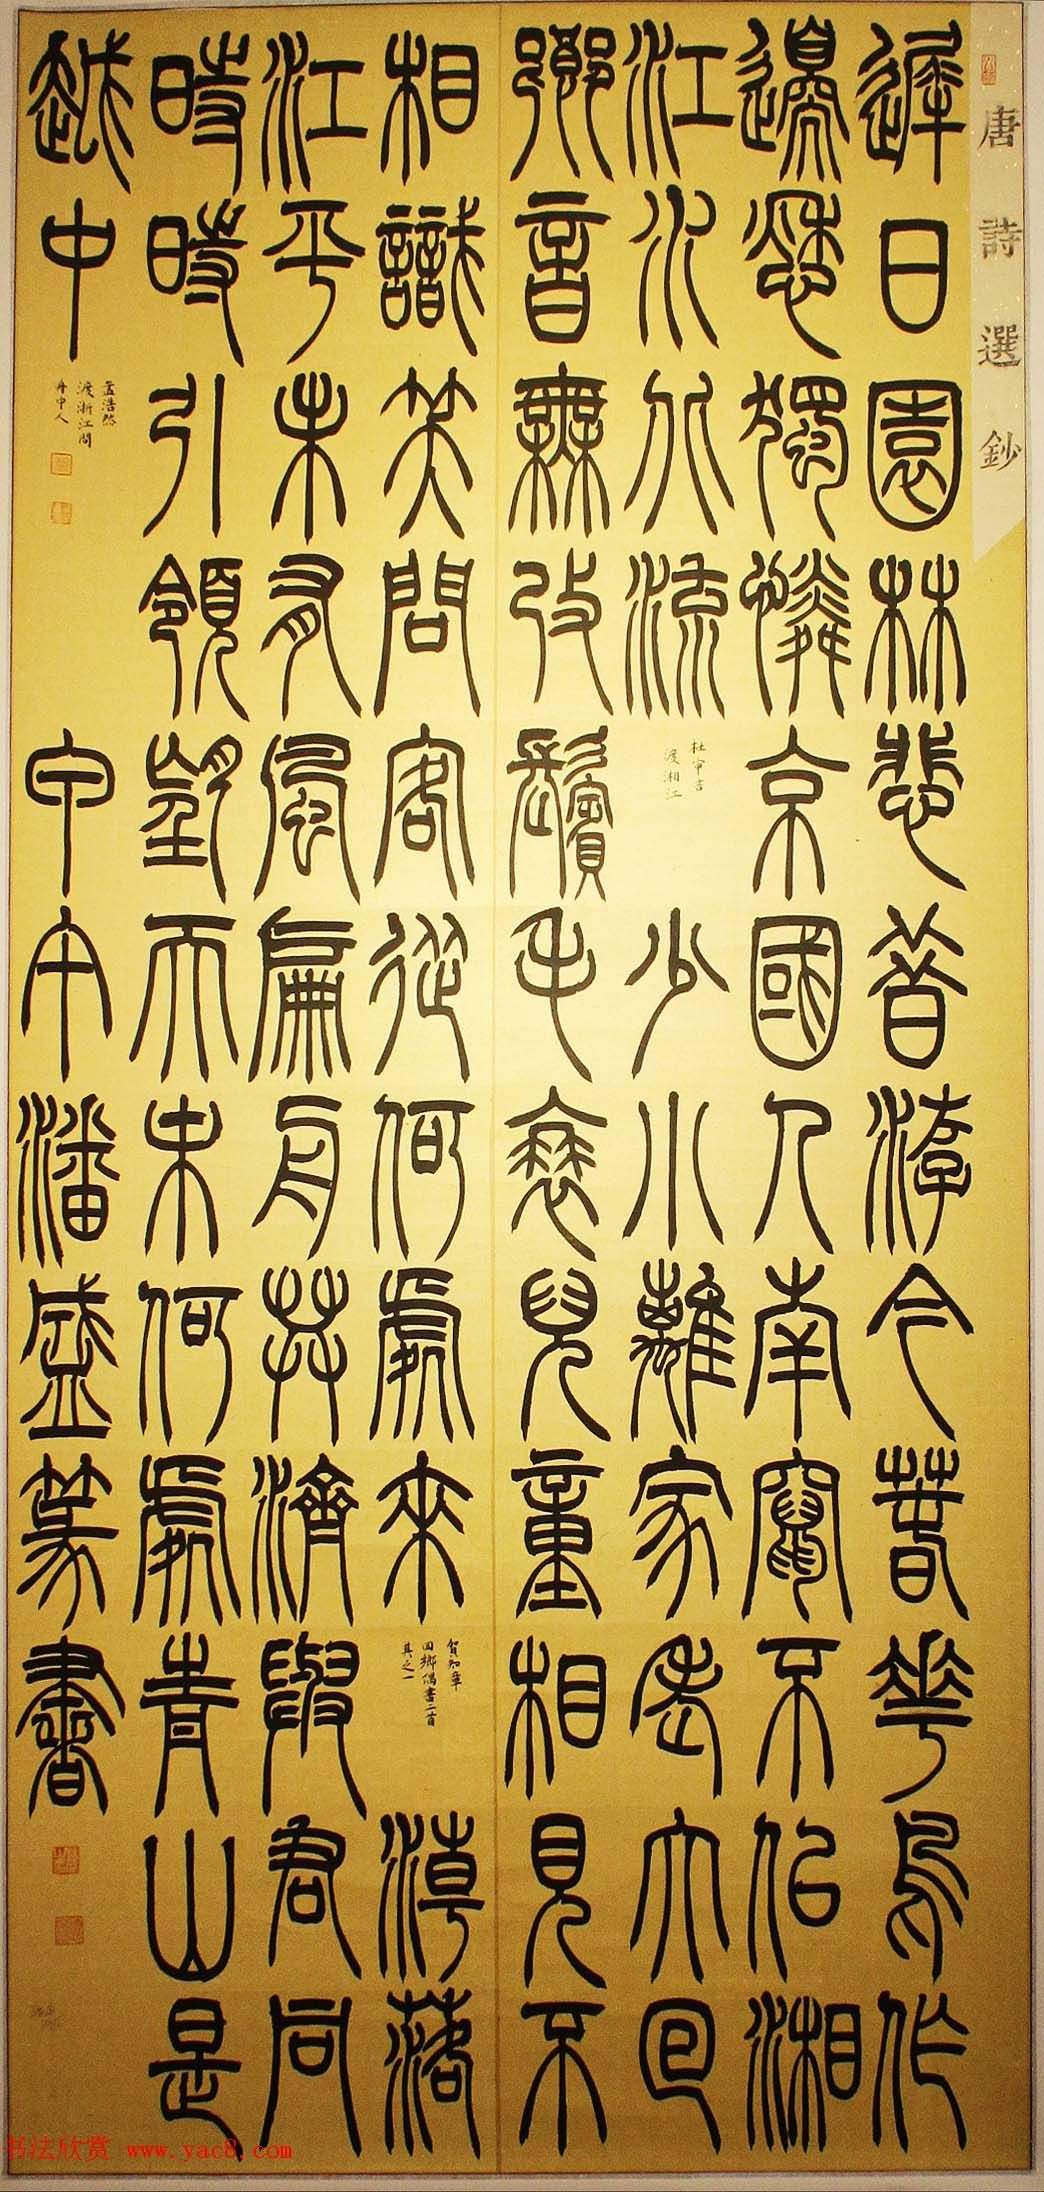 唐詩選鈔
遲日園林悲昔游今春花鳥作
邊愁獨憐京國人南竄不似湘
江水北流
杜審言
渡湘江
少小離家老大回
鄉音無改鬢毛衰兒童相見不
相識笑問客從何處來
賀知章
回鄉偶書二首
其之一
潮落
江平未有風扁舟共濟與君同
時時引領望天末何處青山是
越中
孟浩然
渡浙江問
舟中人
甲午潘盛篆書
书法欣赏 www.yac8.com